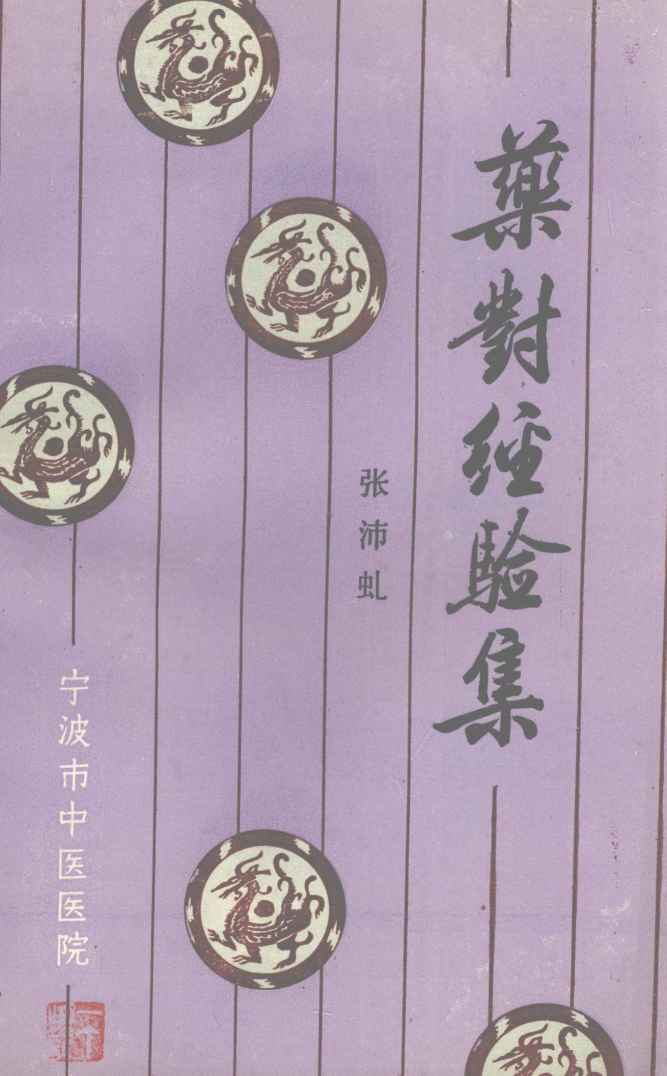 藥對经驗集
张沛虬
宁波市中医医院